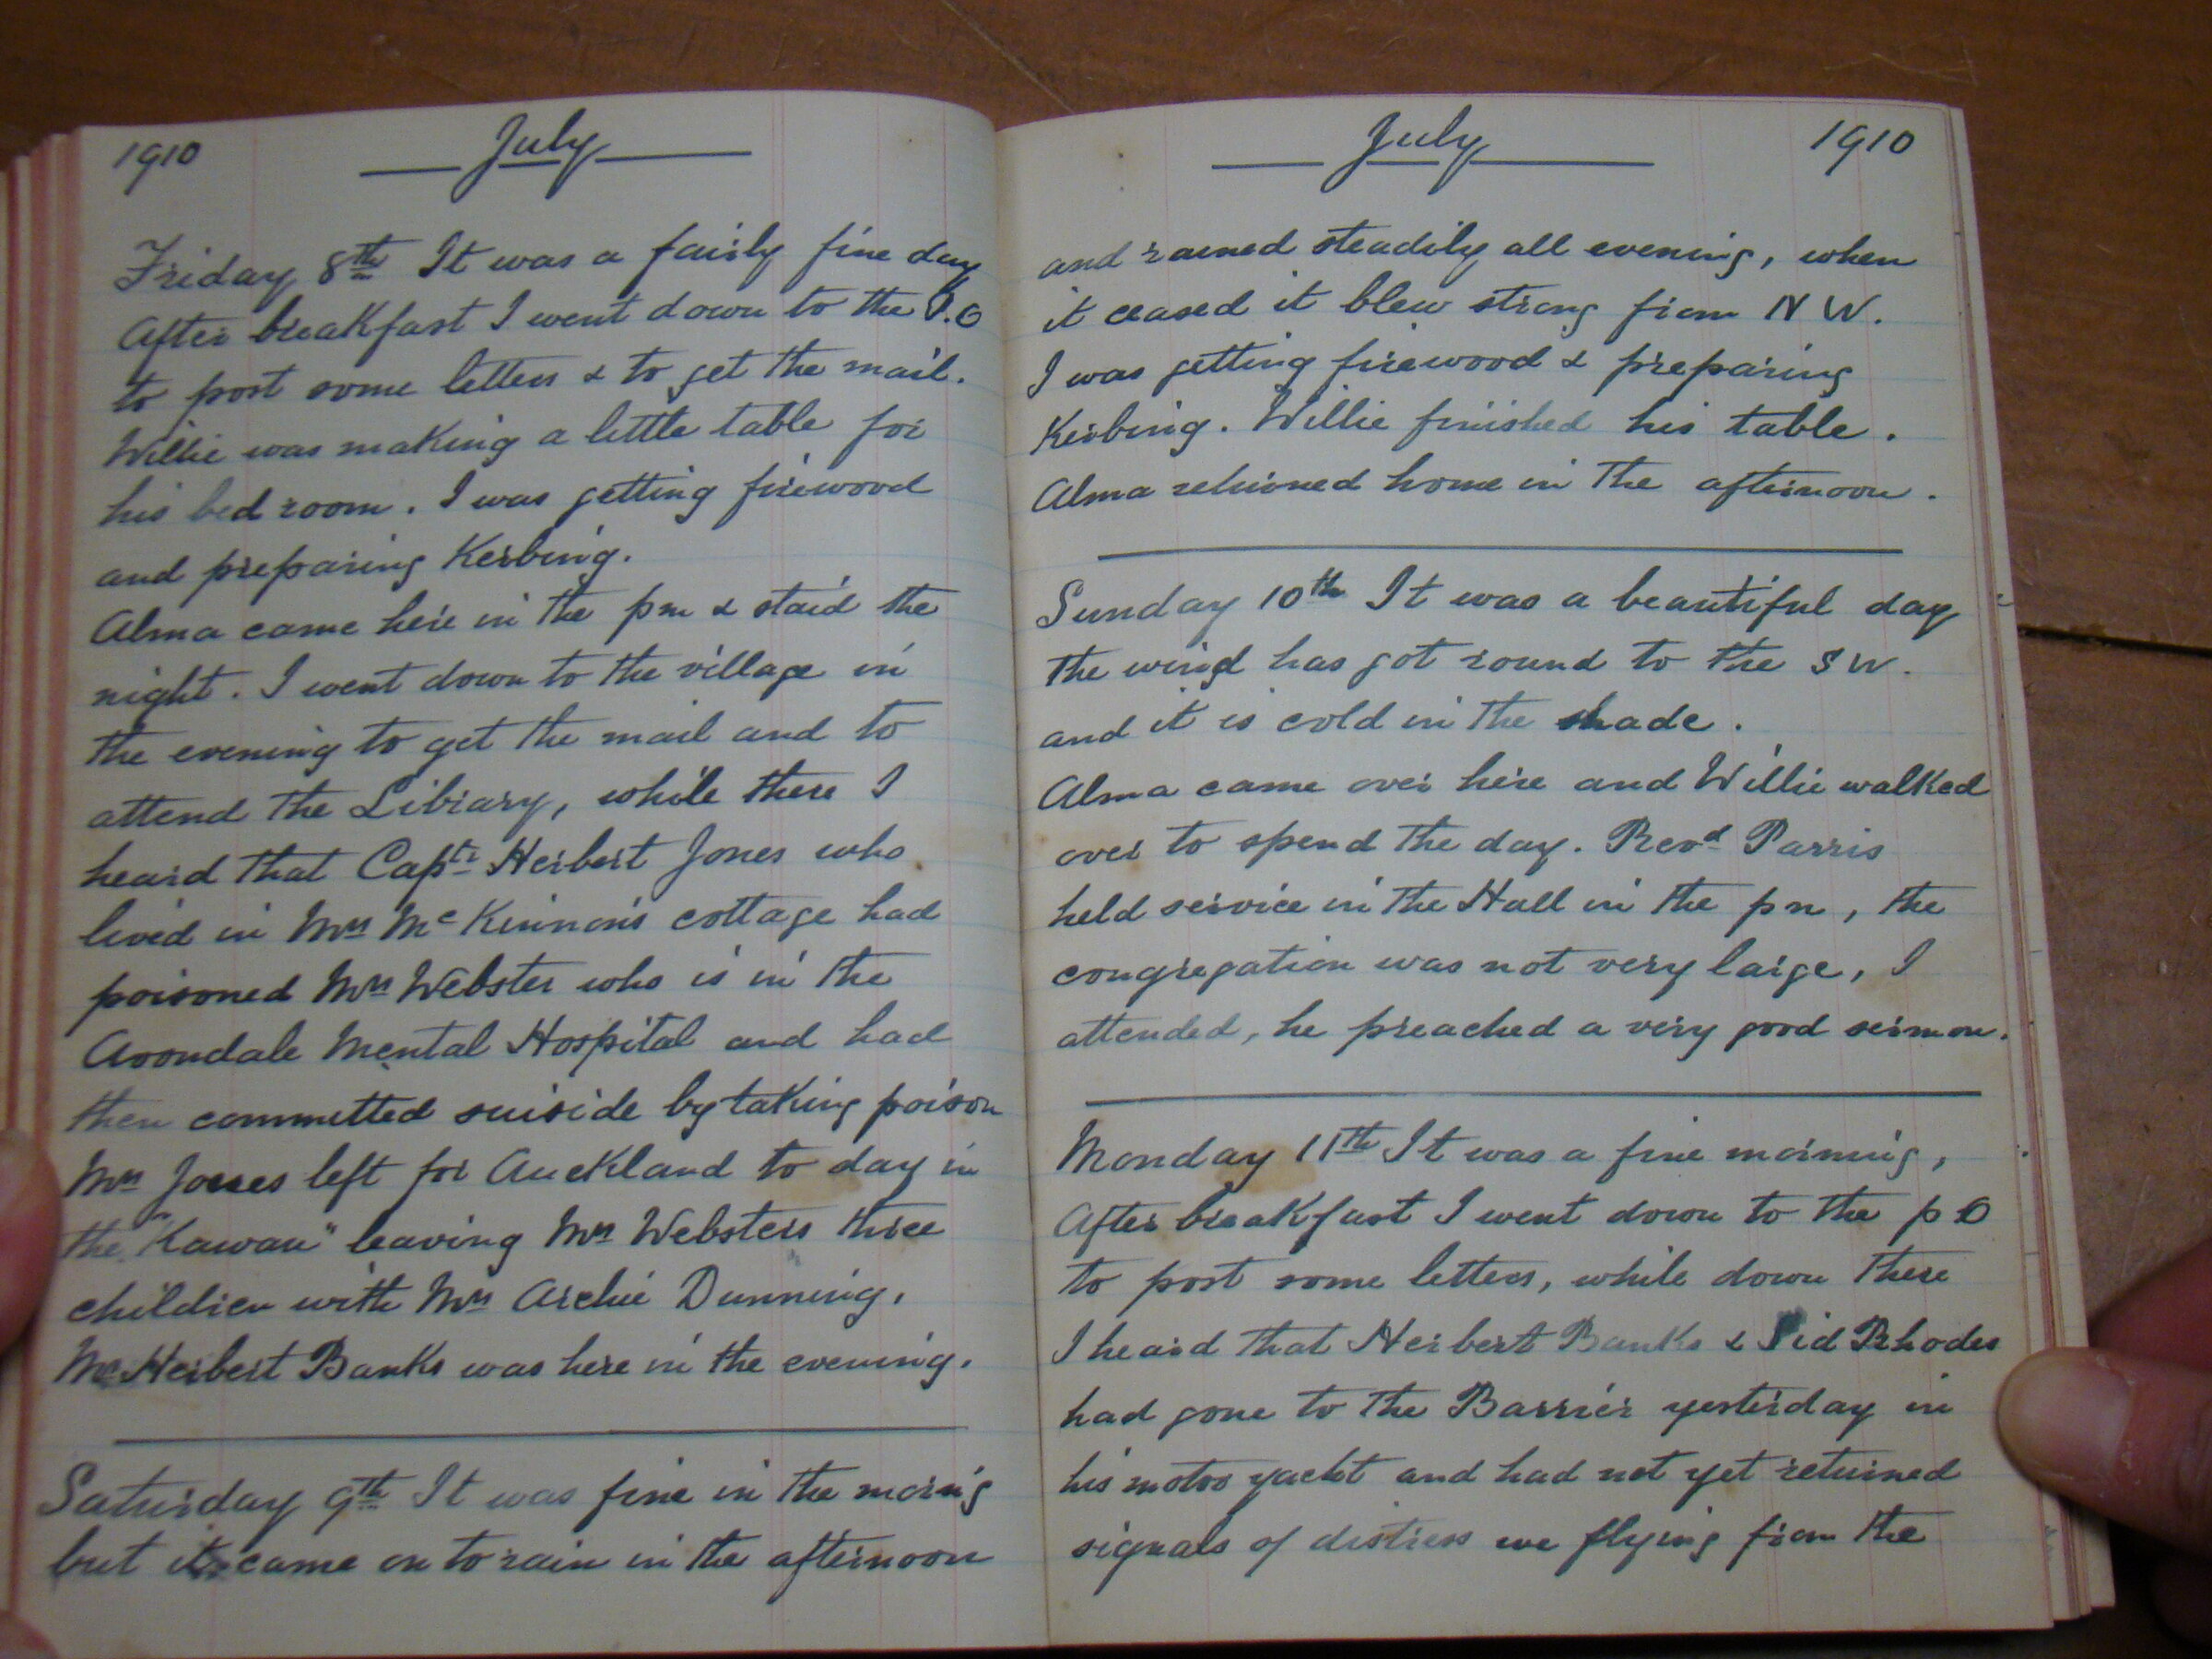 1910 July
Friday 8th It was a fairly fine day
After breakfast I went down to the P.O
to post some letters & to get the mail.
Willie was making a little table for
his bed room. I was getting firewood
and preparing Kerbing.
Alma came here in the pm & staid the
night. I went down to the village in
the evening to get the mail and to
attend the Library, while there I
heard that Captn Herbert Jones who
lived in Mrs McKinnons cottage had
poisoned Mrs Webster who is in the
Avondale Mental Hospital and had
then committed suiside by taking poison
Mrs Jones left for Auckland to day in
the "Kawau" leaving Mrs Websters three
children with Mrs Archie Dunning.
Mr Herbert Banks was here in the evening.
Saturday 9th It was fine in the morn'g
but it came on to rain in the afternoon
July 1910
and rained steadily all evening, when
it ceased it blew strong from N W.
I was getting firewood & preparing
Kerbing. Willie finished his table.
Alma returned home in the afternoon.
Sunday 10th It was a beautiful day
the wind has got round to the S W.
and it is cold in the shade.
Alma came over here and Willie walked
over to spend the day. Revd Parris
held service in the Hall in the pm, the
congregation was not very large, I
attended, he preached a very good sermon.
Monday 11th It was a fine morning,
After breakfast I went down to the p O
to post some letters, while down there
I heard that Herbert Banks & Sid Rhodes
had gone to the Barrier yesterday in
his motor yacht and had not yet returned
signals of distress we flying from the